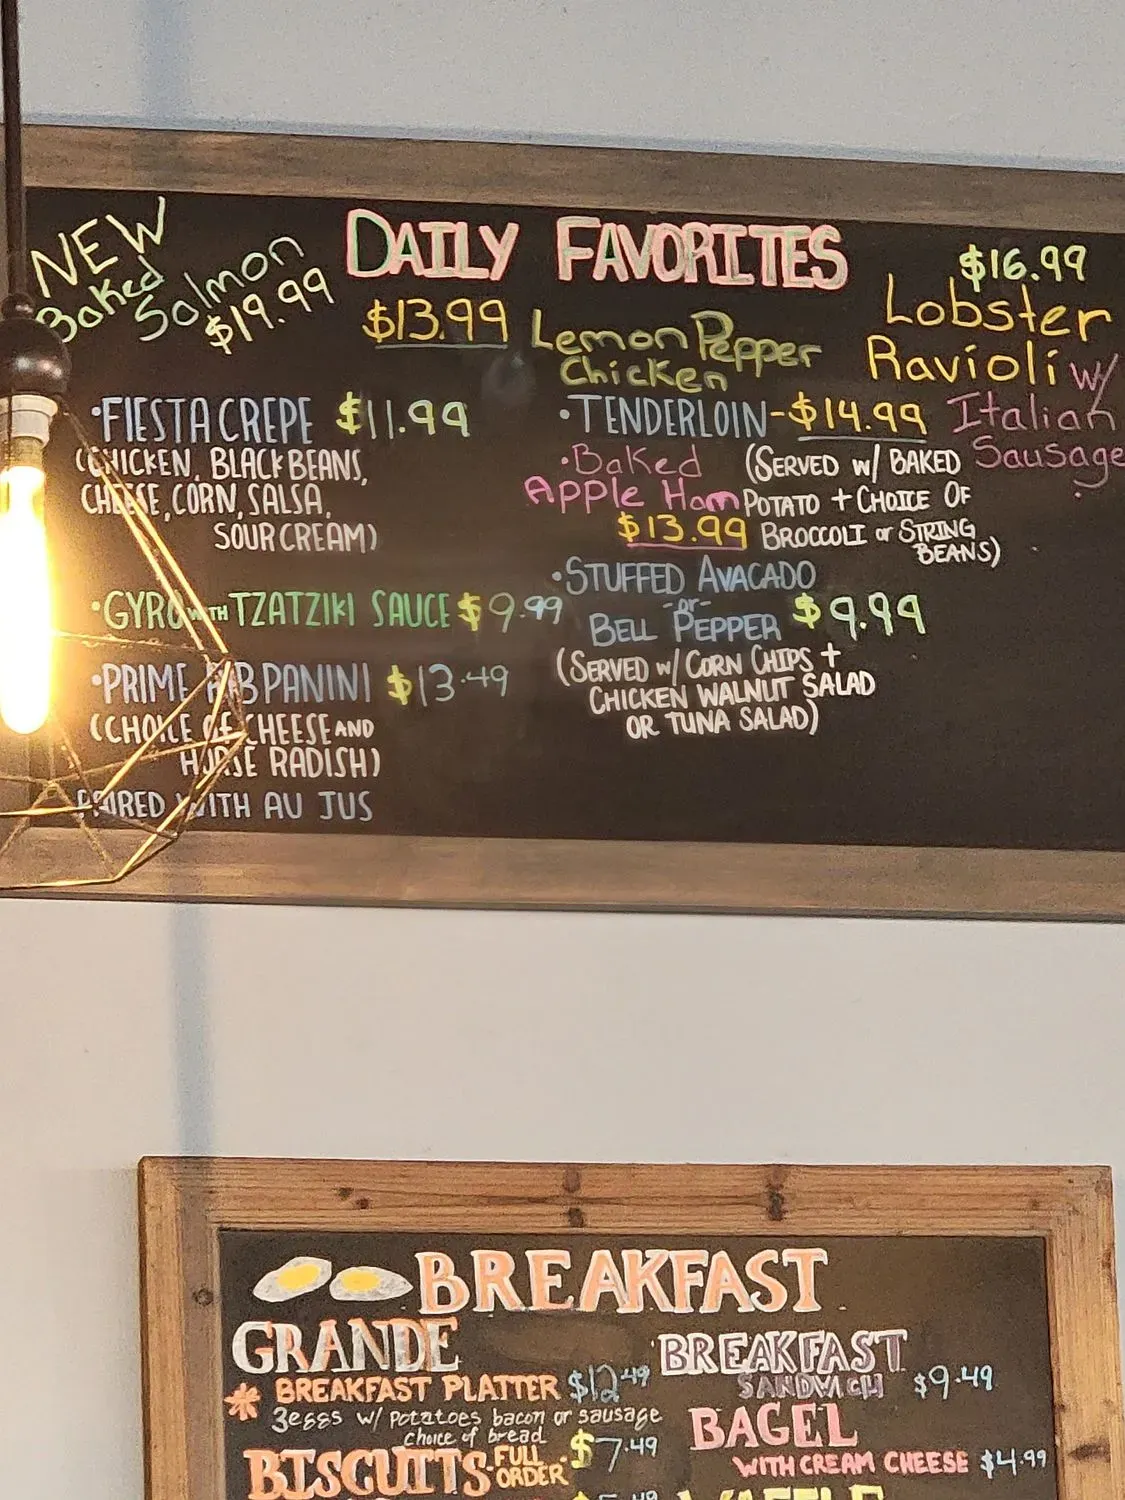 NEW
Baked
Salmon
$19.99
DAILY FAVORITES
$13.99 Lemon Pepper
Chicken
$16.99
Lobster
Ravioli w/
Italian
Sausage
•FIESTA CREPE $11.99
(CHICKEN, BLACK BEANS,
CHEESE, CORN, SALSA,
SOUR CREAM)
•GYRO WITH TZATZIKI SAUCE $9.99
•PRIME RIB PANINI $13.49
(CHOICE OF CHEESE AND
HORSE RADISH)
PAIRED WITH AU JUS
•TENDERLOIN-$14.99
(SERVED w/ BAKED
POTATO + CHOICE OF
BROCCOLI or STRING
BEANS)
•Baked
Apple Ham
$13.99
•STUFFED AVACADO
-or-
BELL PEPPER $9.99
(SERVED w/ CORN CHIPS +
CHICKEN WALNUT SALAD
OR TUNA SALAD)
BREAKFAST
GRANDE
BREAKFAST PLATTER $12.49
3eggs w/ potatoes bacon or sausage
choice of bread
BISCUITS FULL ORDER $7.49
BREAKFAST
SANDWICH $9.49
BAGEL
WITH CREAM CHEESE $4.99